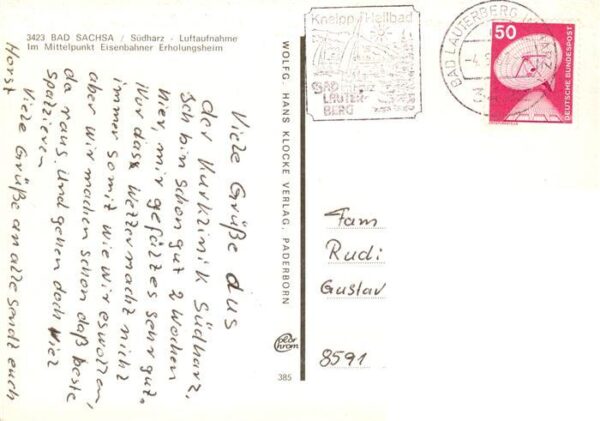 3423 BAD SACHSA / Südharz - Luftaufnahme
Im Mittelpunkt Eisenbahner Erholungsheim
Viele Grüße aus
der Kurklinik Südharz.
Ich bin schon gut 2 Wochen
hier, mir gefällt es sehr gut.
Nur das Wetter macht nicht
immer so mit wie wir es wollen,
aber wir machen schon daß beste
da raus und gehen doch viel
spazieren.
Viele Grüße an alle sendt euch
Horst
WOLFG. HANS KLOCKE VERLAG, PADERBORN
Color
chrom
385
Kneipp Heilbad
BAD
LAUTER-
BERG
BAD LAUTERBERG IM HARZ
50
DEUTSCHE BUNDESPOST
Fam
Rudi
Gustav
8591